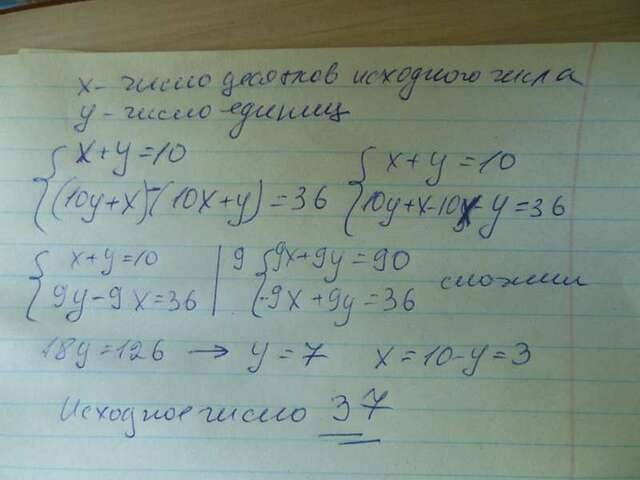 x - число десятков исходного числа
y - число единиц
{ x + y = 10
{ (10y + x) - (10x + y) = 36
{ x + y = 10
{ 10y + x - 10x - y = 36
{ x + y = 10 | 9
{ 9y - 9x = 36
{ 9x + 9y = 90
{ -9x + 9y = 36
сложим
18y = 126 → y = 7 x = 10 - y = 3
Исходное число 37